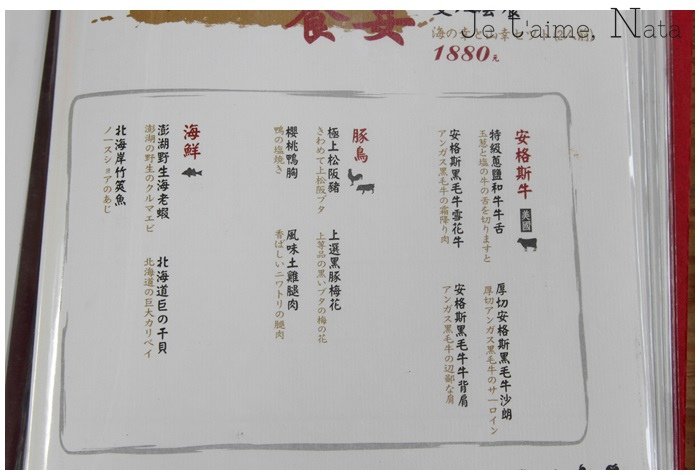 Je t'aime, Nata
食宴
1880元
安格斯牛 美國
特級蔥鹽和牛牛舌
玉葱と塩の牛の舌を切りますと
厚切安格斯黑毛牛沙朗
厚切アンガス黒毛牛のサーロイン
安格斯黑毛牛雪花牛
アンガス黒毛牛の霜降り肉
安格斯黑毛牛牛背肩
アンガス黒毛牛の辺鄙な肩
豚鳥
極上松阪豬
きわめて上松阪ブタ
上選黑豚梅花
上等品の黒いブタの梅の花
櫻桃鴨胸
鴨の塩焼き
風味土雞腿肉
香ばしいニワトリの腿肉
海鮮
澎湖野生海老蝦
澎湖の野生のクルマエビ
北海道巨の干貝
北海道の巨大カリベイ
北海岸竹筴魚
ノースショアのあじ